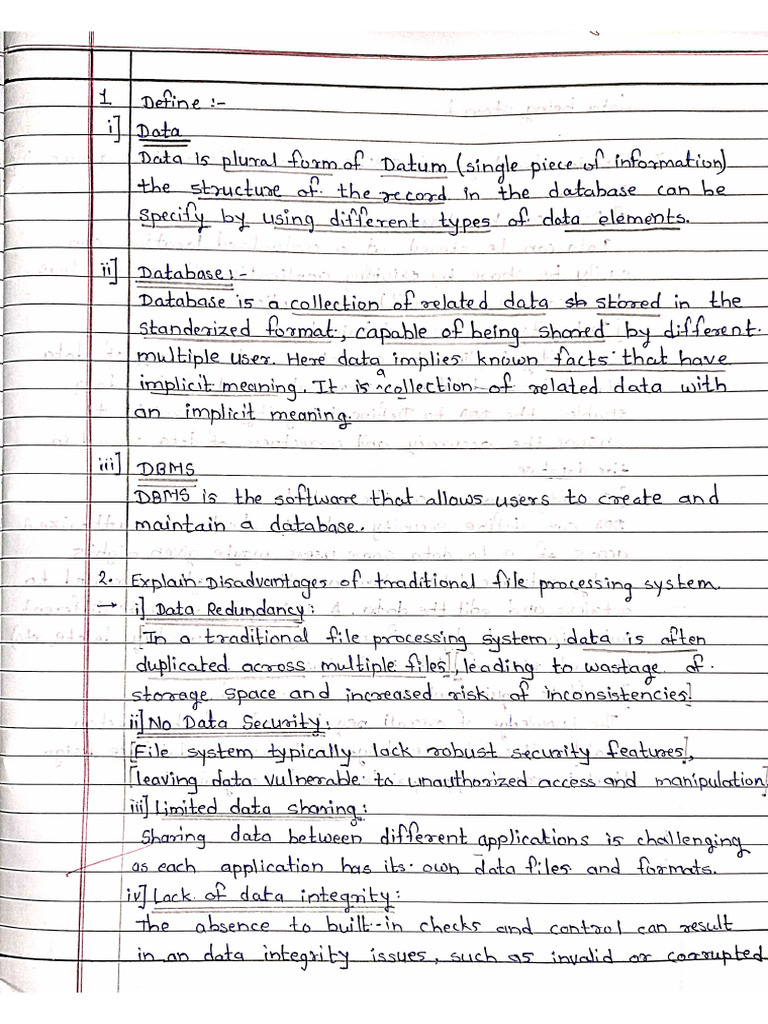 1 Define :-
i] Data
Data is plural form of Datum (single piece of information)
the structure of the record in the database can be
specify by using different types of data elements.
ii] Database :-
Database is a collection of related data stored in the
standerized format, capable of being shared by different
multiple user. Here data implies known facts that have
implicit meaning. It is a collection of related data with
an implicit meaning.
iii] DBMS
DBMS is the software that allows users to create and
maintain a database.
2. Explain Disadvantages of traditional file processing system.
→ i] Data Redundancy:
[In a traditional file processing system, data is often
duplicated across multiple files], leading to wastage of
storage space and increased risk of inconsistencies]
ii] No Data Security:
[File system typically lack robust security features],
[leaving data vulnerable to unauthorized access and manipulation]
iii] Limited data sharing:
Sharing data between different applications is challenging
as each application has its own data files and formats.
iv] Lack of data integrity:
The absence to built-in checks and control can result
in an data integrity issues, such as invalid or corrupted